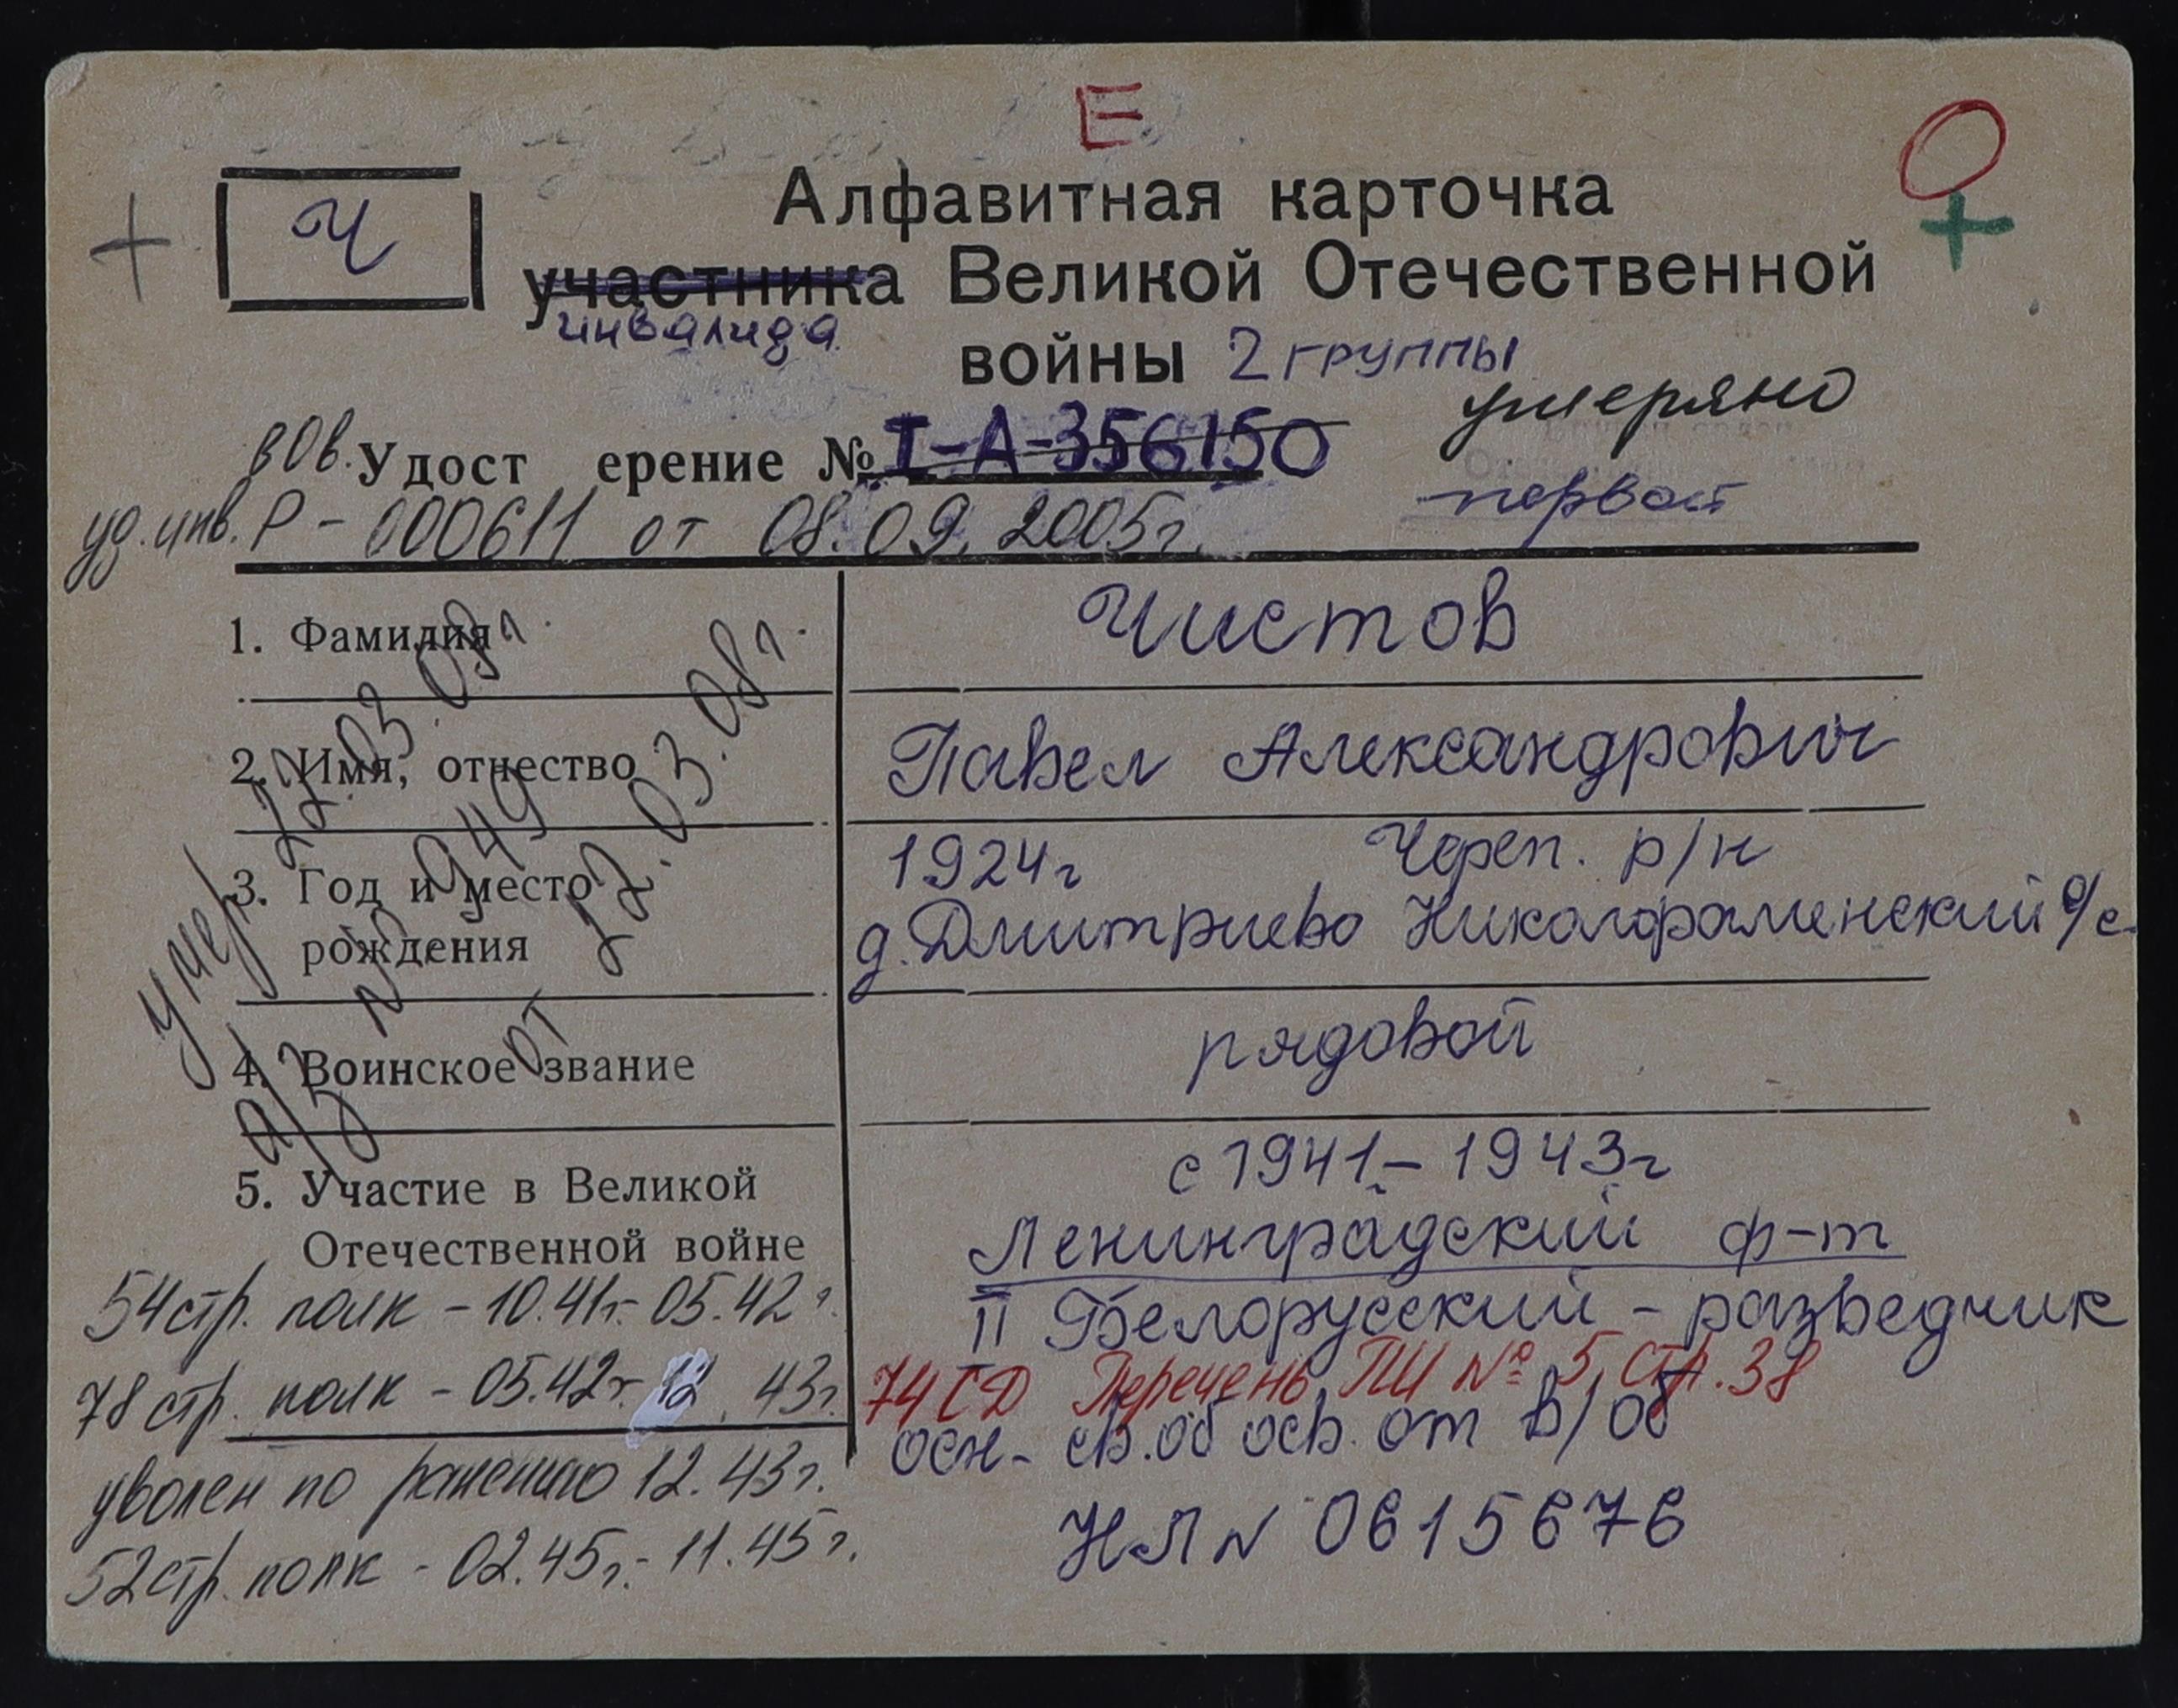 Е
+ Ч
Алфавитная карточка
участника Великой Отечественной
инвалида
войны 2 группы
утеряно
вОв. Удост ерение № I-А-356150
первой
уд. инв. Р - 000611 от 08.09.2005г.
1. Фамилия Чистов
2. Имя, отчество Павел Александрович
3. Год и место рождения
1924г Череп. р/н
д. Дмитриево Николораменский с/с
4. Воинское звание рядовой
умер 12.03.08г.
а/з № 949 от 12.03.08г.
5. Участие в Великой
Отечественной войне
с 1941 - 1943г
Ленинградский ф-т
II Белорусский - разведчик
74 СД Перечень ПИ № 5, стр. 38
осн - св. об осв. от в/об
НЛ N 0615676
54 стр. полк - 10.41г. - 05.42г.
78 стр. полк - 05.42г. 12.43г.
уволен по ранению 12.43г.
52 стр. полк - 02.45г. - 11.45г.